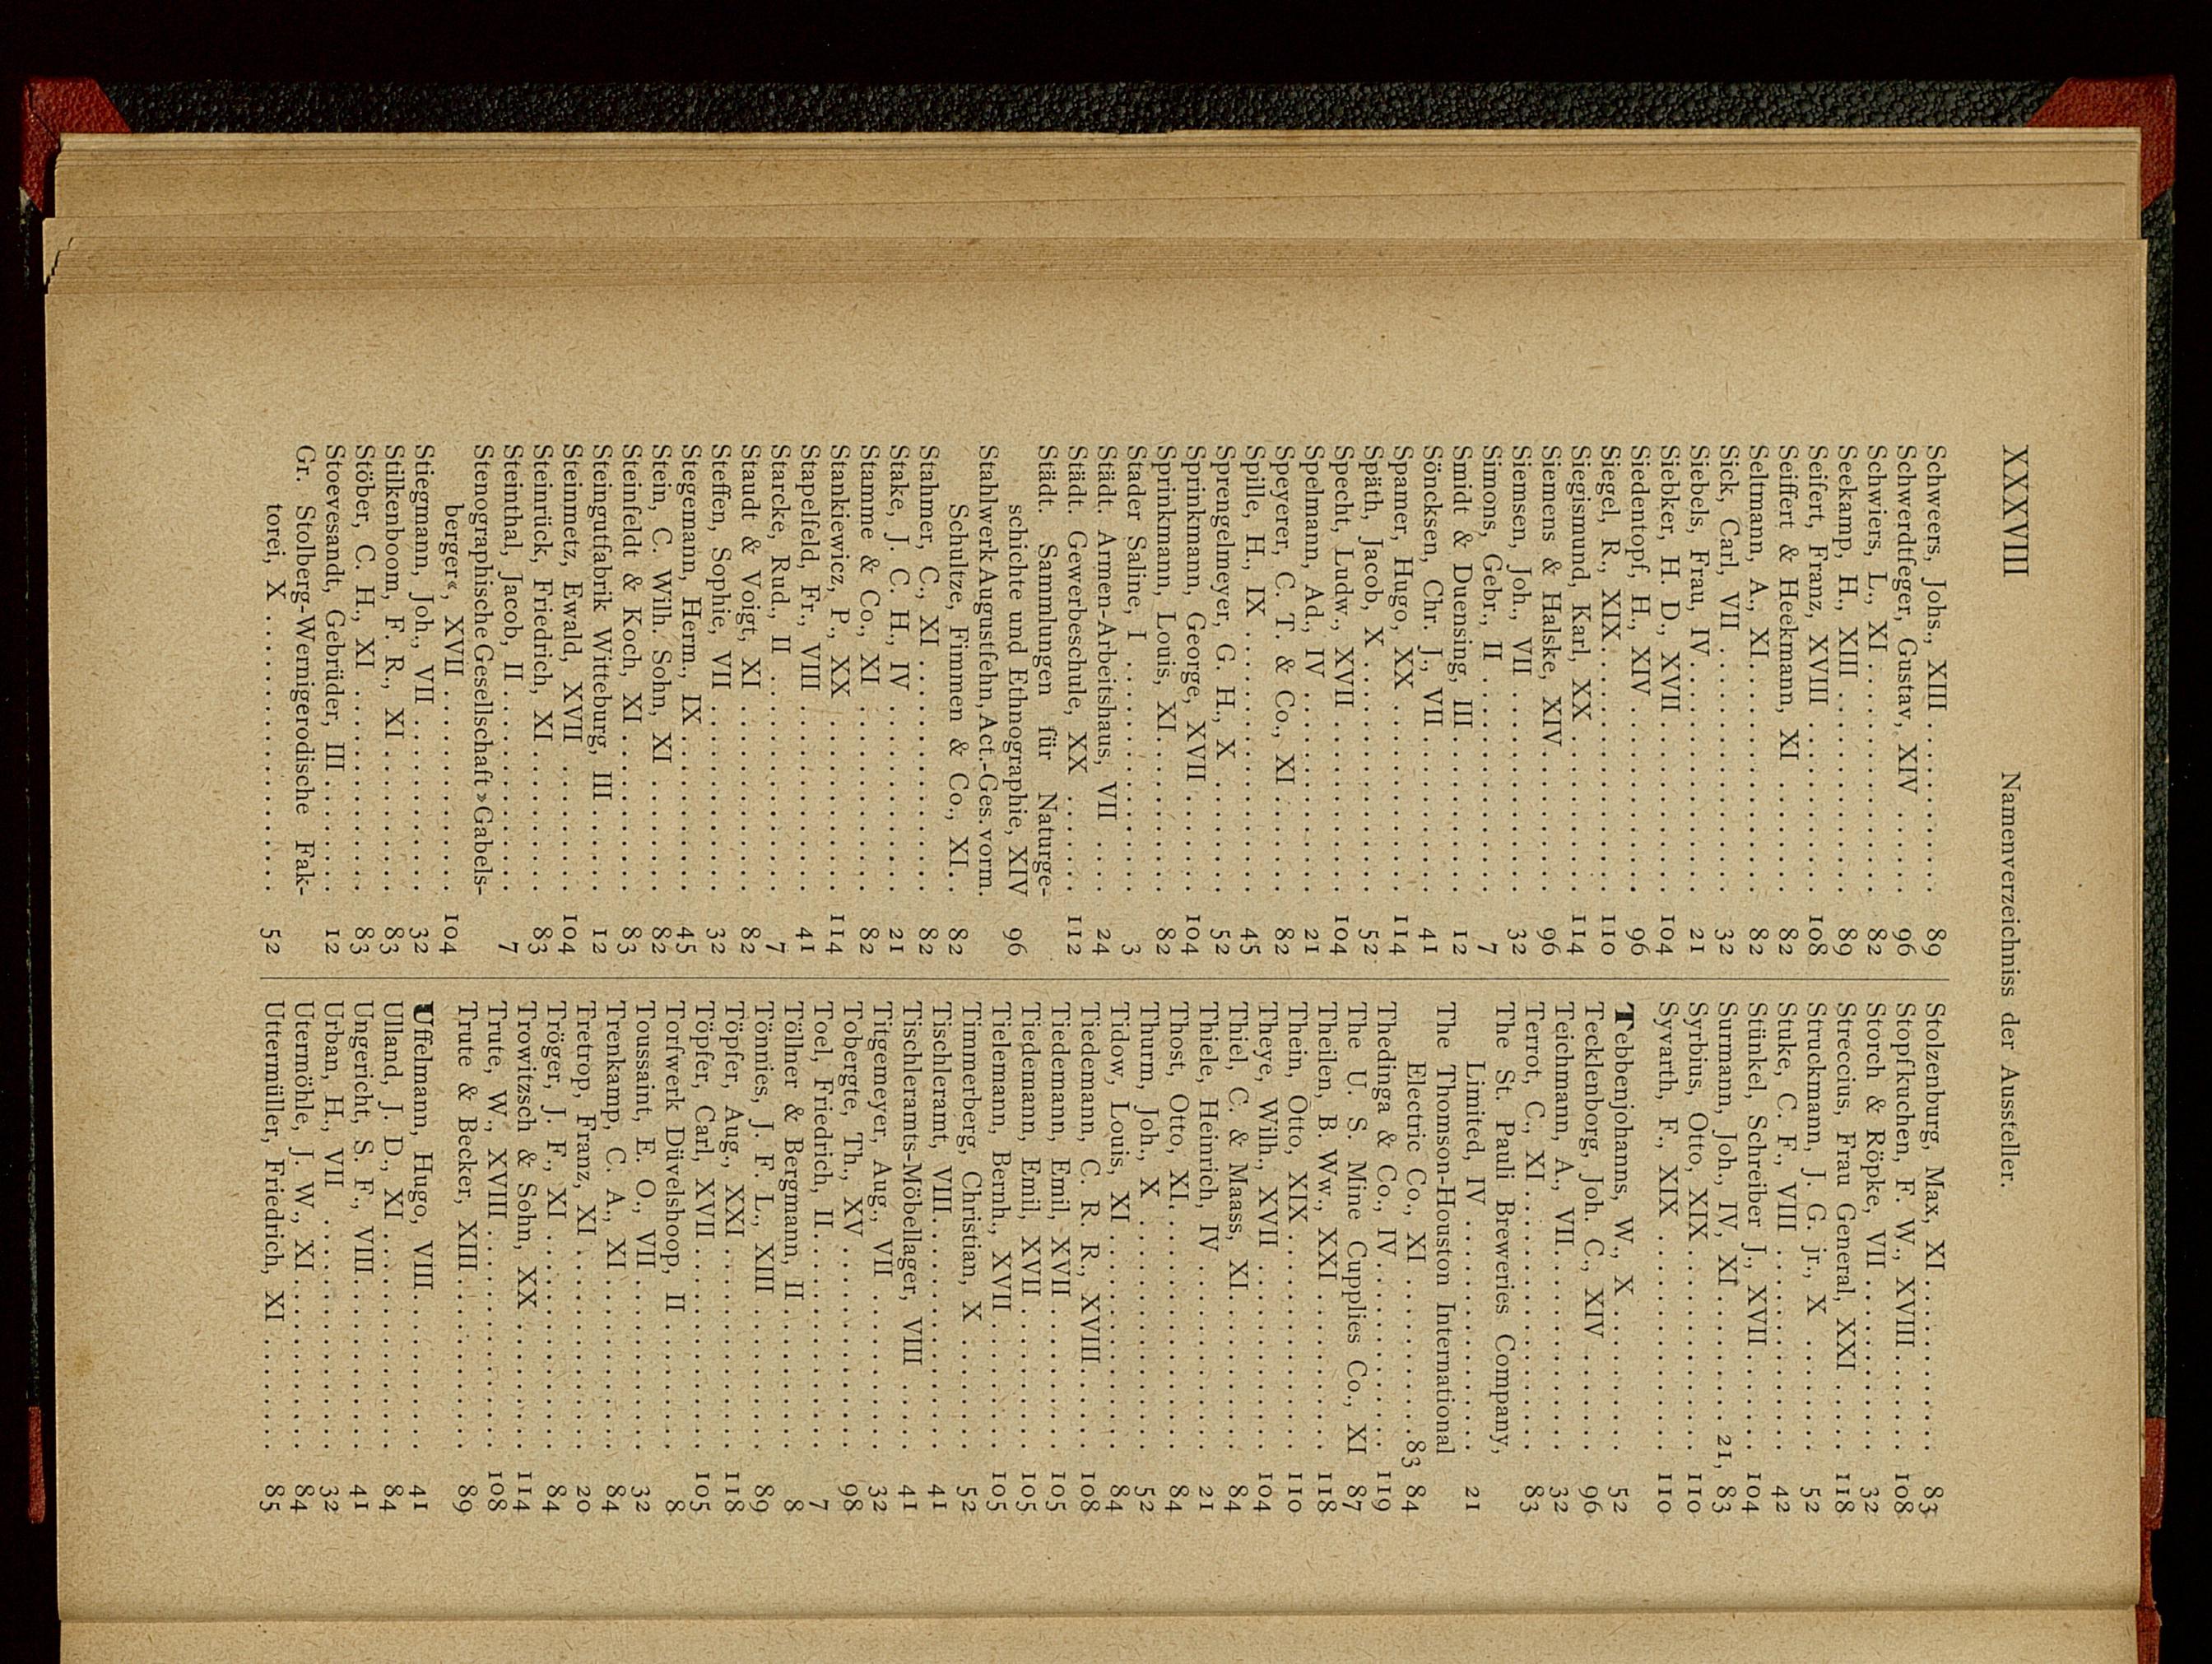 XXXVIII Namenverzeichniss der Aussteller.
Schweers, Johs., XIII .......... 89
Schwerdtfeger, Gustav, XIV ...... 96
Schwiers, L., XI .............. 82
Seekamp, H., XIII ............. 89
Seifert, Franz, XVIII .......... 108
Seiffert & Heekmann, XI ........ 82
Seltmann, A., XI .............. 82
Sick, Carl, VII ............... 32
Siebels, Frau, IV .............. 21
Siebker, H. D., XVII ........... 104
Siedentopf, H., XIV ............ 96
Siegel, R., XIX ................ 110
Siegismund, Karl, XX ........... 114
Siemens & Halske, XIV .......... 96
Siemsen, Joh., VII ............. 32
Simons, Gebr., II .............. 7
Smidt & Duensing, III .......... 12
Söncksen, Chr. J., VII .......... 41
Spamer, Hugo, XX .............. 114
Späth, Jacob, X ................ 52
Specht, Ludw., XVII ............ 104
Spelmann, Ad., IV .............. 21
Speyerer, C. T. & Co., XI ....... 82
Spille, H., IX .................. 45
Sprengelmeyer, G. H., X ........ 52
Sprinkmann, George, XVII ....... 104
Sprinkmann, Louis, XI .......... 82
Stader Saline, I ................ 3
Städt. Armen-Arbeitshaus, VII .... 24
Städt. Gewerbeschule, XX ....... 112
Städt. Sammlungen für Naturge-
schichte und Ethnographie, XIV 96
Stahlwerk Augustfehn, Act.-Ges. vorm.
Schultze, Fimmen & Co., XI .. 82
Stahmer, C., XI ................ 82
Stake, J. C. H., IV ............. 21
Stamme & Co., XI .............. 82
Stankiewicz, P., XX ............ 114
Stapelfeld, Fr., VIII ............ 41
Starcke, Rud., II ............... 7
Staudt & Voigt, XI ............. 82
Steffen, Sophie, VII ............ 32
Stegemann, Herm., IX .......... 45
Stein, C. Wilh. Sohn, XI ........ 82
Steinfeldt & Koch, XI ........... 83
Steingutfabrik Witteburg, III ..... 12
Steinmetz, Ewald, XVII ......... 104
Steinrück, Friedrich, XI ......... 83
Steinthal, Jacob, II ............. 7
Stenographische Gesellschaft »Gabels-
berger«, XVII ............... 104
Stiegmann, Joh., VII ............ 32
Stilkenboom, F. R., XI .......... 83
Stöber, C. H., XI ............... 83
Stoevesandt, Gebrüder, III ....... 12
Gr. Stolberg-Wernigerodische Fak-
torei, X .................... 52
Stolzenburg, Max, XI ........... 83
Stopfkuchen, F. W., XVIII ....... 108
Storch & Röpke, VII ............ 32
Streccius, Frau General, XXI ..... 118
Struckmann, J. G. jr., X ........ 52
Stuke, C. F., VIII .............. 42
Stünkel, Schreiber J., XVII ...... 104
Surmann, Joh., IV, XI ......... 21, 83
Syrbius, Otto, XIX .............. 110
Syvarth, F., XIX ................ 110
Tebbenjohanns, W., X .......... 52
Tecklenborg, Joh. C., XIV ....... 96
Teichmann, A., VII ............. 32
Terrot, C., XI .................. 83
The St. Pauli Breweries Company,
Limited, IV ................. 21
The Thomson-Houston International
Electric Co., XI ............ 83, 84
Thedinga & Co., IV ............. 119
The U. S. Mine Cupplies Co., XI 87
Theilen, B. Ww., XXI ........... 118
Thein, Otto, XIX ............... 110
Theye, Wilh., XVII ............. 104
Thiel, C. & Maass, XI .......... 84
Thiele, Heinrich, IV ............ 21
Thost, Otto, XI ................. 84
Thurm, Joh., X ................ 52
Tidow, Louis, XI ............... 84
Tiedemann, C. R. R., XVIII ...... 108
Tiedemann, Emil, XVII .......... 105
Tiedemann, Emil, XVII .......... 105
Tielemann, Bernh., XVII ........ 105
Timmerberg, Christian, X ........ 52
Tischleramt, VIII ............... 41
Tischleramts-Möbellager, VIII ..... 41
Titgemeyer, Aug., VII ........... 32
Tobergte, Th., XV .............. 98
Toel, Friedrich, II .............. 7
Töllner & Bergmann, II ......... 8
Tönnies, J. F. L., XIII .......... 89
Töpfer, Aug., XXI .............. 118
Töpfer, Carl, XVII .............. 105
Torfwerk Düvelshoop, II ........ 8
Toussaint, E. O., VII ........... 32
Trenkamp, C. A., XI ............ 84
Tretrop, Franz, XI .............. 20
Tröger, J. F., XI ............... 84
Trowitzsch & Sohn, XX ......... 114
Trute, W., XVIII ............... 108
Trute & Becker, XIII ........... 89
Uffelmann, Hugo, VIII .......... 41
Ulland, J. D., XI ............... 84
Ungericht, S. F., VIII ........... 41
Urban, H., VII ................. 32
Utermöhle, J. W., XI ........... 84
Uttermüller, Friedrich, XI ....... 85